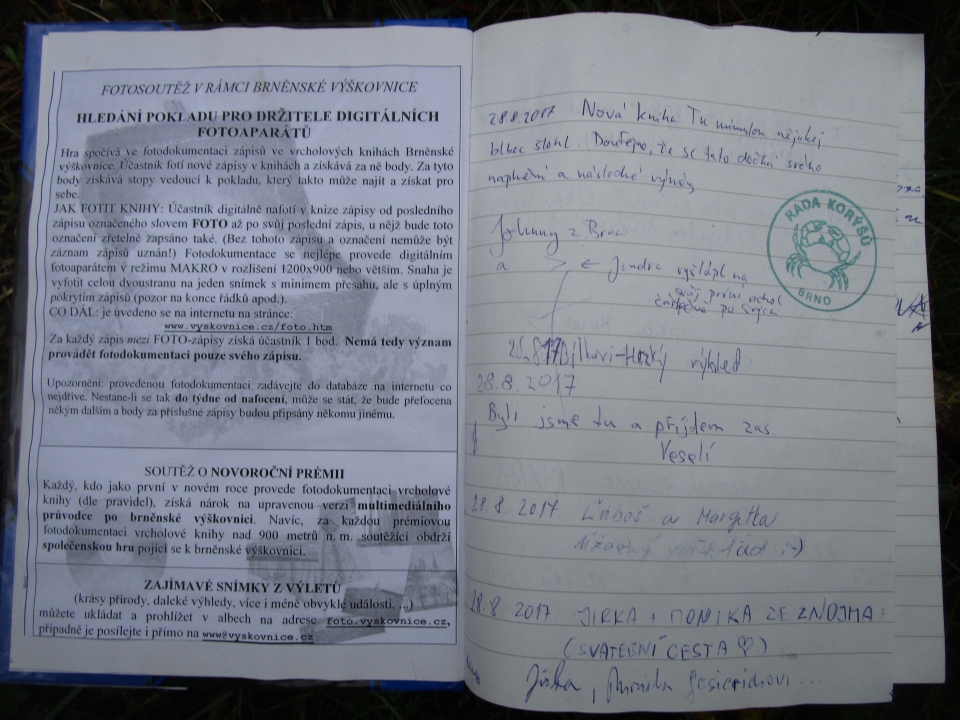 FOTOSOUTĚŽ V RÁMCI BRNĚNSKÉ VÝŠKOVNICE
HLEDÁNÍ POKLADU PRO DRŽITELE DIGITÁLNÍCH
FOTOAPARÁTŮ
Hra spočívá ve fotodokumentaci zápisů ve vrcholových knihách Brněnské
výškovnice. Účastník fotí nové zápisy v knihách a získává za ně body. Za tyto
body získává stopy vedoucí k pokladu, který takto může najít a získat pro
sebe.
JAK FOTIT KNIHY: Účastník digitálně nafotí v knize zápisy od posledního
zápisu označeného slovem FOTO až po svůj poslední zápis, u nějž bude toto
označení zřetelně zapsáno také. (Bez tohoto zápisu a označení nemůže být
záznam zápisů uznán!) Fotodokumentace se nejlépe provede digitálním
fotoaparátem v režimu MAKRO v rozlišení 1200x900 nebo větším. Snaha je
vyfotit celou dvoustranu na jeden snímek s minimem přesahu, ale s úplným
pokrytím zápisů (pozor na konce řádků apod.).
CO DÁL: je uvedeno se na internetu na stránce:
www.vyskovnice.cz/foto.htm
Za každý zápis mezi FOTO-zápisy získá účastník 1 bod. Nemá tedy význam
provádět fotodokumentaci pouze svého zápisu.
Upozornění: provedenou fotodokumentaci zadávejte do databáze na internetu co
nejdříve. Nestane-li se tak do týdne od nafocení, může se stát, že bude přefocena
někým dalším a body za příslušné zápisy budou připsány někomu jinému.
SOUTĚŽ O NOVOROČNÍ PRÉMII
Každý, kdo jako první v novém roce provede fotodokumentaci vrcholové
knihy (dle pravidel), získá nárok na upravenou verzi multimediálního
průvodce po brněnské výškovnici. Navíc, za každou prémiovou
fotodokumentaci vrcholové knihy nad 900 metrů n. m. soutěžící obdrží
společenskou hru pojící se k brněnské výškovnici.
ZAJÍMAVÉ SNÍMKY Z VÝLETŮ
(krásy přírody, daleké výhledy, více i méně obvyklé události, ...)
můžete ukládat a prohlížet v albech na adrese foto.vyskovnice.cz,
případně je posílejte i přímo na www@vyskovnice.cz
28.8.2017 Nová kniha. Tu minulou nějakej
blbec stohl. Doufejme, že se tato dočká svého
naplnění a následné výměny
RADA KORÝŠŮ
BRNO
Johnny z Brna
a ← Jindra vyšlápl na
svůj první vrchol
po svých
výhled
28.8.2017
Byli jsme tu a příjdem zas.
Veselí
28.8.2017 Luboš a Margitta
:-)
28.8.2017 JIRKA + MONIKA ZE ZNOJMA:
(SVATEBNÍ CESTA ♡)
Jirka, Monika